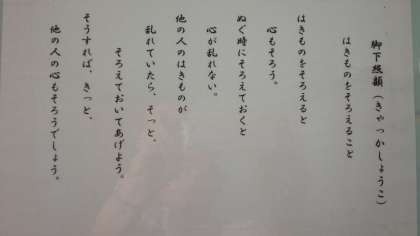 脚下照顧(きゃっかしょうこ)
はきものをそろえること
はきものをそろえると
心もそろう。
ぬぐ時にそろえておくと
心が乱れない。
他の人のはきものが
乱れていたら、そっと、
そろえておいてあげよう。
そうすれば、きっと、
他の人の心もそろうでしょう。